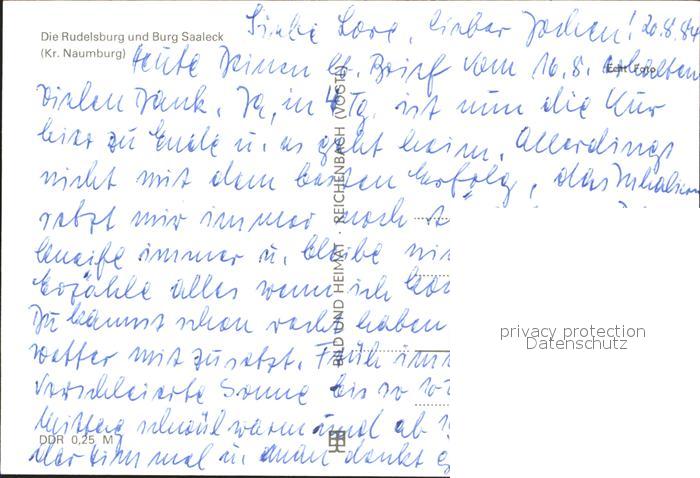 Die Rudelsburg und Burg Saaleck
(Kr. Naumburg)
Liebe Lore, lieber Jochen! 20.8.84
Heute Deinen lb. Brief vom 16.8. erhalten
Vielen Dank. Ja, in 4 Tg. ist nun die Kur
hier zu Ende u. es geht heim. Allerdings
nicht mit dem besten Erfolg, das Inhalieren
setzt mir immer noch
immer u. bleibe
Erzähle alles wenn ich
Du kannst schon recht haben
wetter mit zusetzt. Früh
verschleierte Sonne bis so 10
Mittag schwül warm und ab
mal u. man denkt
BILD UND HEIMAT · REICHENBACH (VOGTL)
DDR 0,25 M
privacy protection
Datenschutz